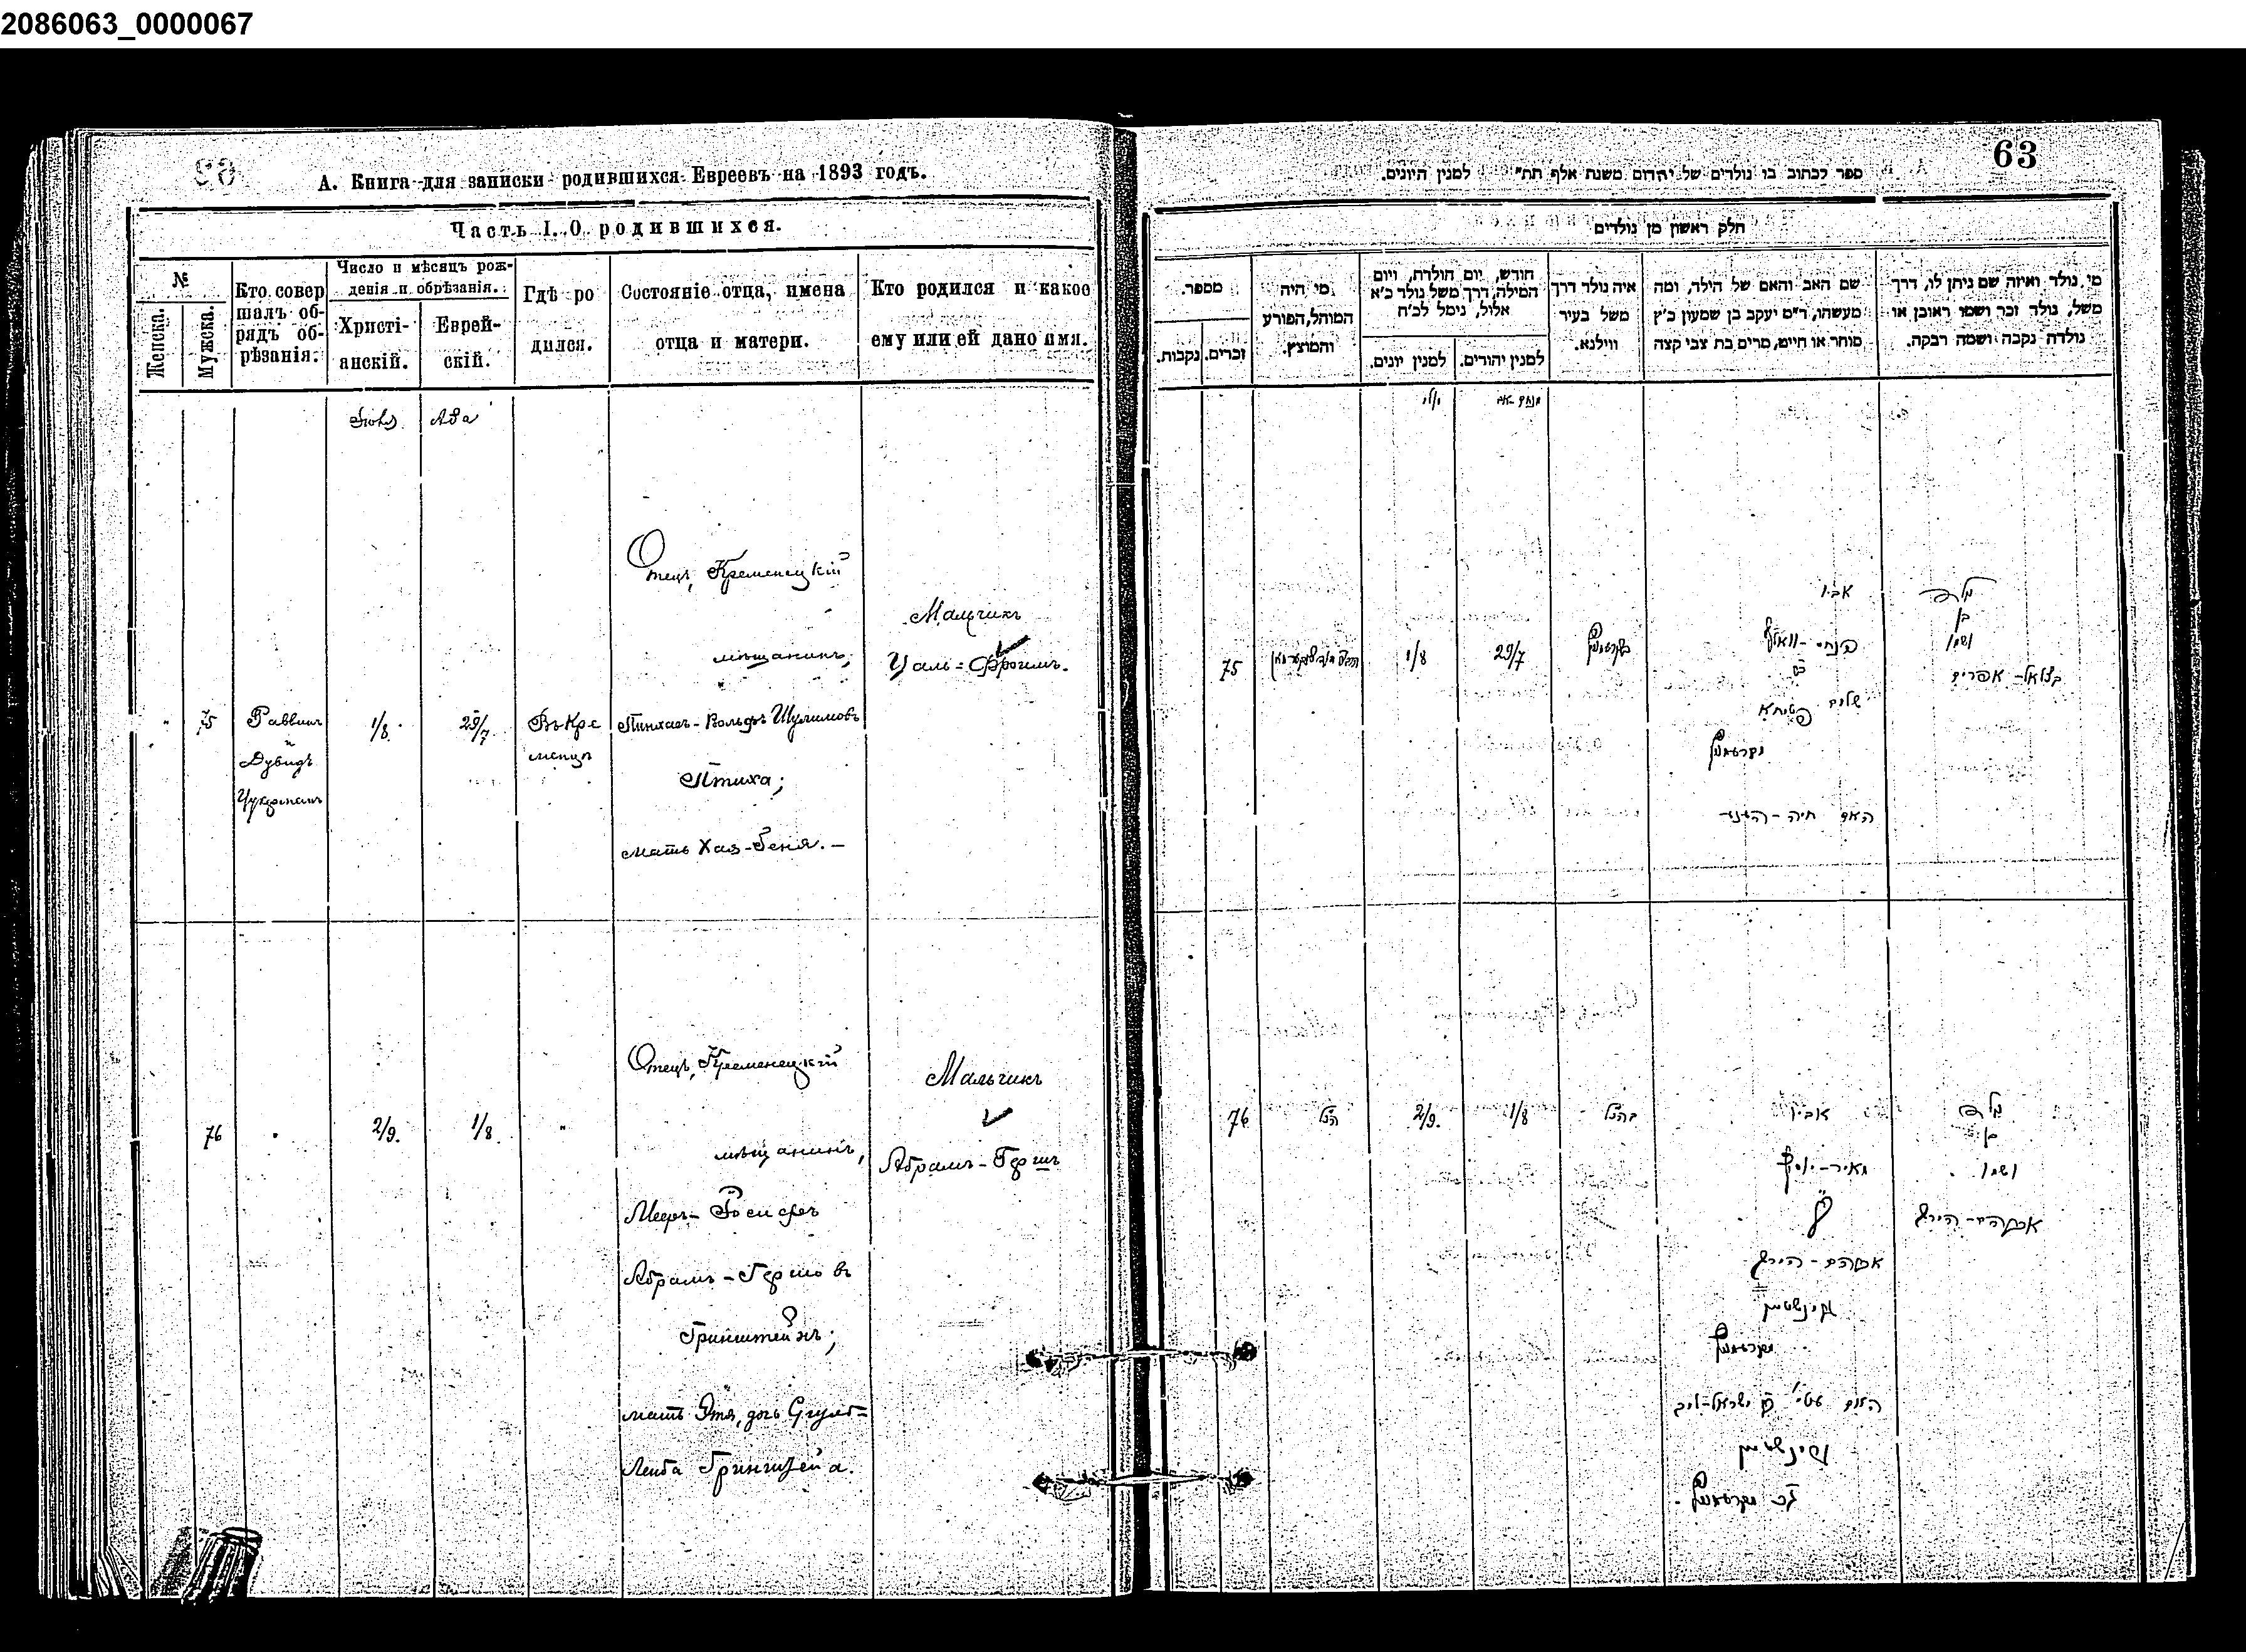 2086063_0000067
63
А. Книга для записки родившихся Евреевъ на 1893 годъ.
Часть I. О родившихся.
№
Женска.
Мужска.
Кто совер
шалъ об-
рядъ об-
рѣзанія.
Число и мѣсяцъ рож-
денія и обрѣзанія.
Христі-
анскій.
Еврей-
скій.
Гдѣ ро
дился.
Состояніе отца, имена
отца и матери.
Кто родился и какое
ему или ей дано имя.
Ава
75
Раввинъ
и
Дувидъ
Цукерманъ
1/8.
29/7
Въ Кре
менцѣ
Отецъ, Кременецкій
мѣщанинъ,
Пинхасъ-Вольфъ Шулимовъ
Птиха;
мать Хая-Геня. —
Мальчикъ
Цаль=Фроимъ.
76
2/9.
1/8.
"
Отецъ, Кременецкій
мѣщанинъ,
Мееръ-
Абрамъ-Гершовъ
Гринштейнъ;
мать Этя, дочь
Лейба Гринштейна.
Мальчикъ
Абрамъ-Гершъ
63
ספר לכתוב בו נולדים של יהדום משנת אלף תת״ למנין היונים.
חלק ראשון מן נולדים
מספר.
זכרים.
נקבות.
מי היה
המוהל, הפורע
והמוצץ.
חודש, יום הולדת, ויום
המילה, דרך משל נולד כ׳א
אלול, נימל לכ׳ח
למנין יונים.
למנין יהודים.
איה נולד דרך
משל בעיר
ווילנא.
שם האב והאם של הילד, ומה
מעשהו, ד״מ יעקב בן שמעון כ׳ץ
סוחר או חייט, מרים בת צבי קצה
מי נולד ואיזה שם ניתן לו, דרך
משל, נולד זכר ושמו ראובן או
נולדה נקבה ושמה רבקה.
יולי
מנחם אב
75
1/8
29/7
אביו
פינחס-וואלף
שלום פטיחא
האם חיה-הענע
ושמו
בצלאל-אפרים
76
הנ״ל
2/9.
1/8
בהנ״ל
אביו
מאיר-יוסף
אברהם-הירש
גרינשטיין
ישראל-ליב
גרינשטיין
ושמו
אברהם-הירש